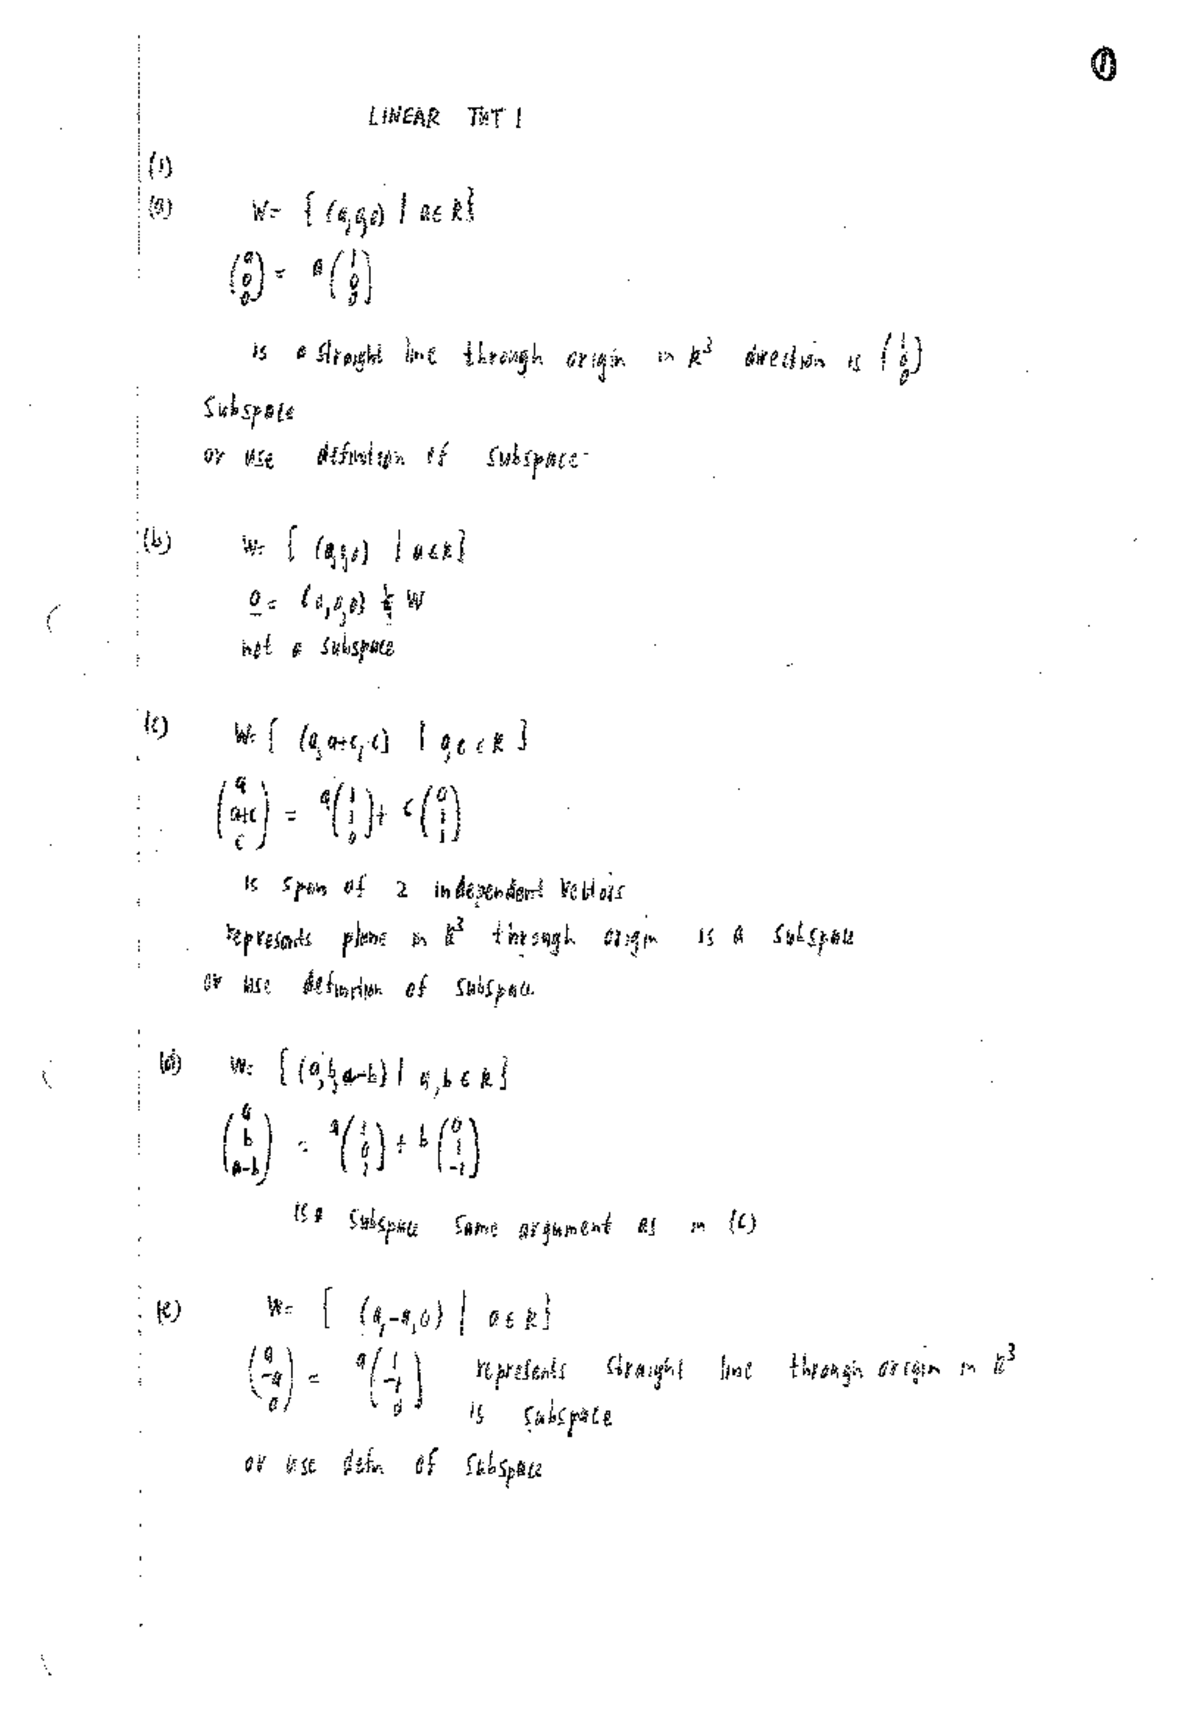 ①
LINEAR TUT 1
(1)
(a) W= { (a,0,0) | a∈R}
(a 0 0) = a (1 0 0)
is a straight line through origin in R³ direction is (1 0 0)
Subspace
or use definition of subspace
(b) W= { | a∈R}
0= (0,0,0) ∉ W
not a subspace
(c) W= { (a, a+c, c) | a,c ∈ R }
(a a+c c) = a (1 1 0) + c (0 1 1)
is span of 2 independent vectors
represents plane in R³ through origin is a subspace
or use definition of subspace.
(d) W= { (a,b,a-b) | a,b ∈ R}
(a b a-b) = a (1 0 1) + b (0 1 -1)
is a subspace same argument as in (c)
(e) W= { (a,-a,0) | a∈R}
(a -a 0) = a (1 -1 0) represents straight line through origin in R³
is subspace
or use defn of subspace